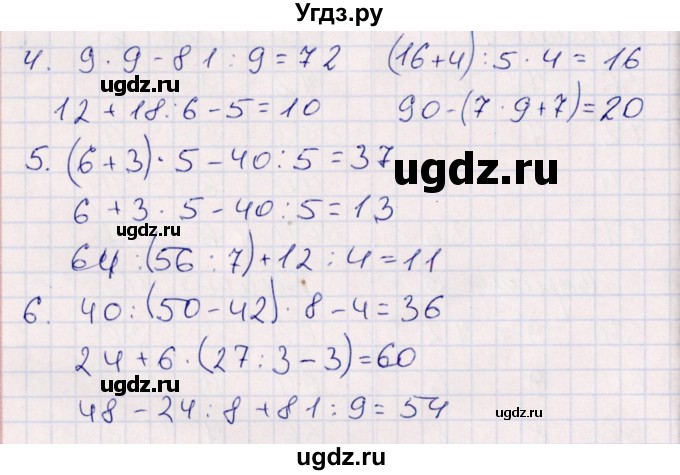 Угдз.ру
4. 9 · 9 - 81 : 9 = 72 (16+4) : 5 · 4 = 16
ugdz.ru ugdz.ru
12 + 18 : 6 - 5 = 10 90 - (7 · 9 + 7) = 20
5. (6 + 3) · 5 - 40 : 5 = 37
ugdz.ru
6 + 3 · 5 - 40 : 5 = 13
ugdz.ru
64 : (56 : 7) + 12 : 4 = 11
6. 40 : (50 - 42) · 8 - 4 = 36
24 + 6 · (27 : 3 - 3) = 60
ugdz.ru
48 - 24 : 8 + 81 : 9 = 54
ugdz.ru
ugdz.ru